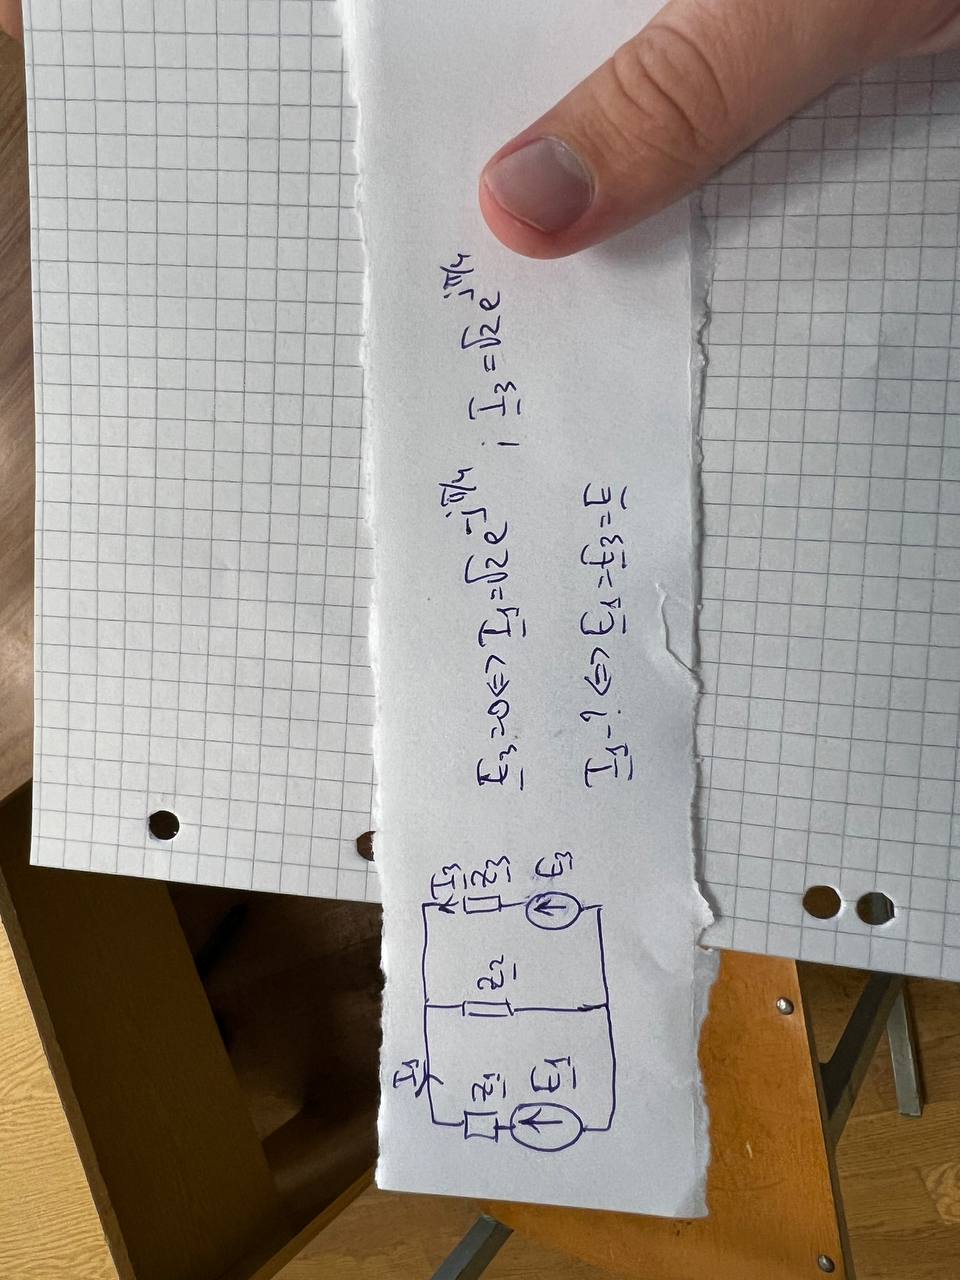 I1
I3
Z1
Z2
Z3
E1
E3
E3=0 <=> I1=√2 e^-jπ/4 ; I3=√2 e^jπ/4
I1-? <=> E1=E3=E